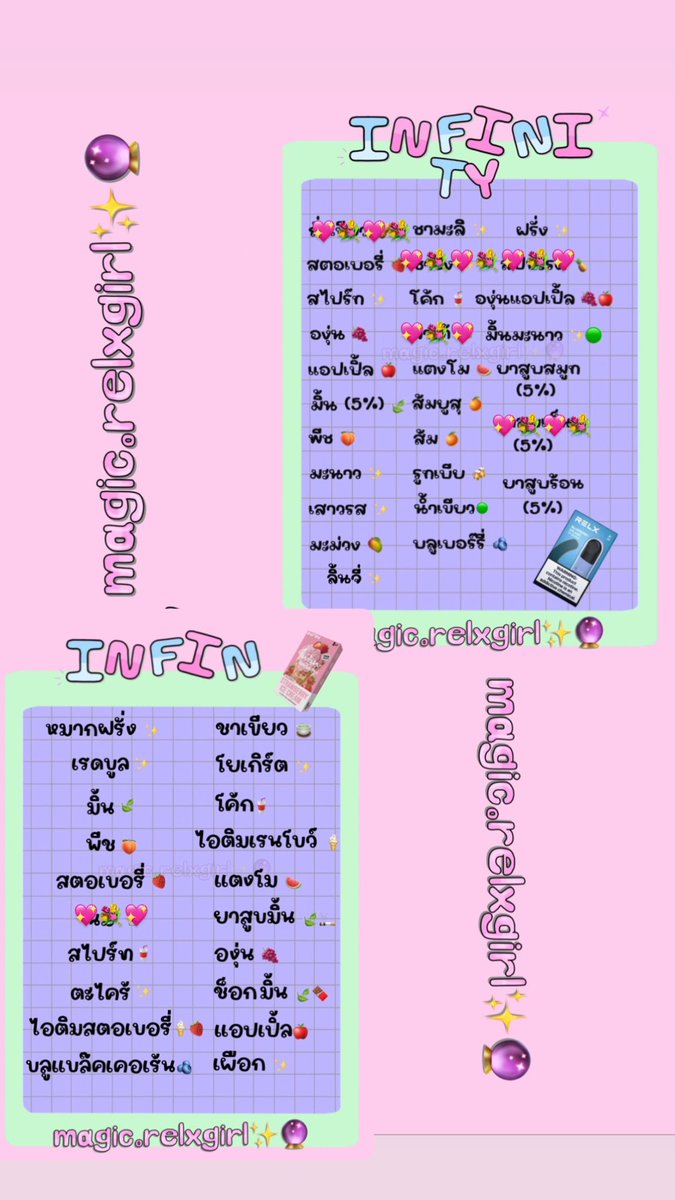 magic.relxgirl
INFINI
TY
ชามะลิ ฝรั่ง
สตอเบอรี่
สไปร์ท โค้ก องุ่นแอปเปิ้ล
องุ่น มิ้นมะนาว
magic.relxgirl
แอปเปิ้ล แตงโม ยาสูบสมูท
(5%)
มิ้น (5%) ส้มยูสุ
พีช ส้ม (5%)
มะนาว รูทเบีย ยาสูบร้อน
เสาวรส น้ำเขียว (5%)
มะม่วง บลูเบอร์รี่
RELX
WARNING:
ลิ้นจี่
magic.relxgirl
INFIN
หมากฝรั่ง ชาเขียว
เรดบูล โยเกิร์ต
มิ้น โค้ก
พีช ไอติมเรนโบว์
magic.relxgirl
สตอเบอรี่ แตงโม
ยาสูบมิ้น
สไปร์ท องุ่น
ตะไคร้ ช็อกมิ้น
ไอติมสตอเบอรี่ แอปเปิ้ล
บลูแบล๊คเคอเร้น เผือก
magic.relxgirl
magic.relxgirl